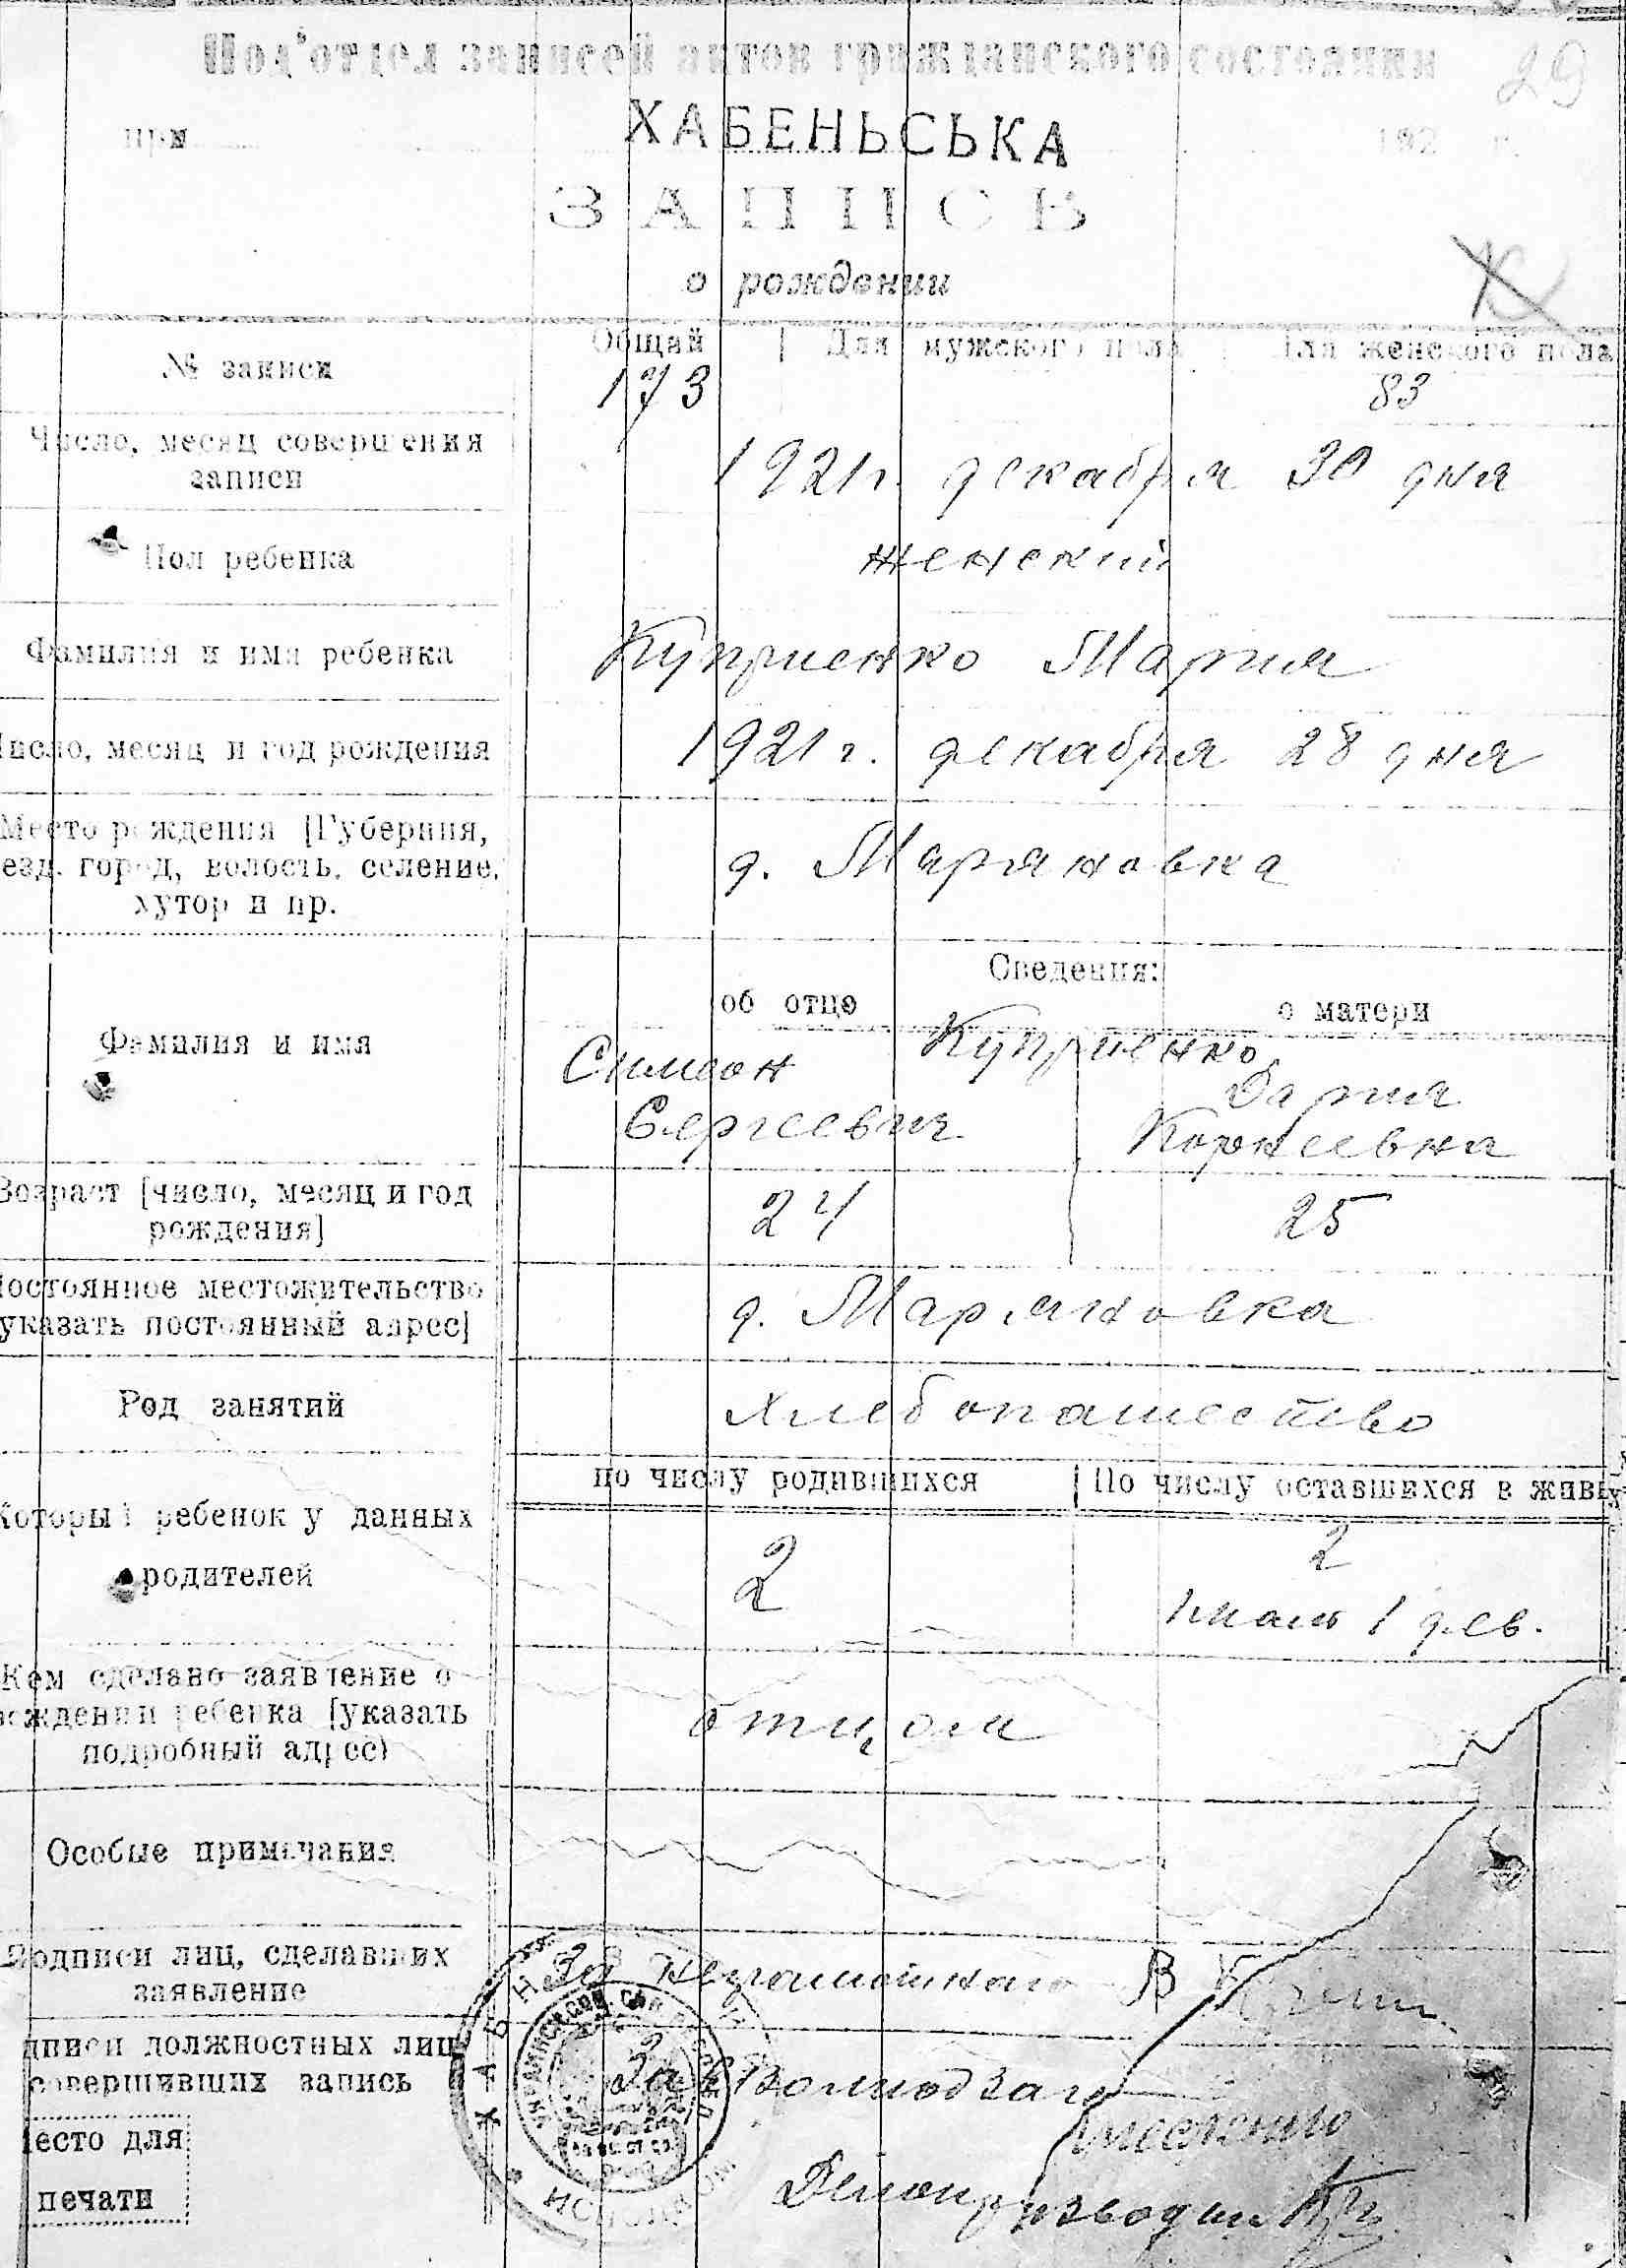 Под'отдел записей актов гражданского состояния
29
при ХАБЕНЬСЬКА 192 г.
ЗАПИСЬ
о рождении
№ записи
Общий | Для мужского пола | Для женского пола
173 83
Число, месяц совершения записи
1921 г. декабря 30 дня
Пол ребенка
женский
Фамилия и имя ребенка
Куприенко Мария
Число, месяц и год рождения
1921 г. декабря 28 дня
Место рождения [Губерния,
уезд, город, волость, селение,
хутор и пр.
д. Марьяновка
Сведения:
об отце о матери
Фамилия и имя
Куприенко
Симеон Дария
Сергеевич Корнеевна
Возраст [число, месяц и год
рождения]
24 25
Постоянное местожительство
указать постоянный адрес]
д. Марьяновка
Род занятий
хлебопашество
по числу родившихся | По числу оставшихся в живых
Который ребенок у данных
родителей
2 2
1 мал 1 дев.
Кем сделано заявление о
рождении ребенка [указать
подробный адрес)
отцом
Особые примечания
Подписи лиц, сделавших
заявление
За неграмотного В
Подписи должностных лиц
совершивших запись
За
Место для
печати
Делопроизводит